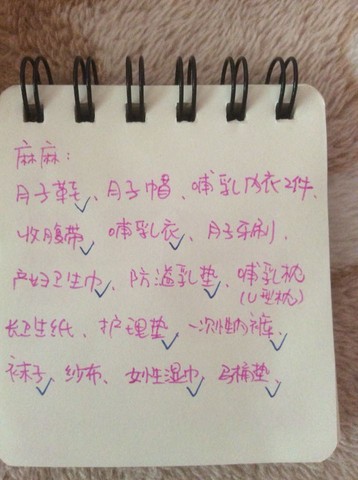 麻麻：
月子鞋、月子帽、哺乳内衣2件、
收腹带、哺乳衣、月子牙刷、
产妇卫生巾、防溢乳垫、哺乳枕
(U型枕)
长卫生纸、护理垫、一次性内裤、
袜子、纱布、女性湿巾、马裤垫、